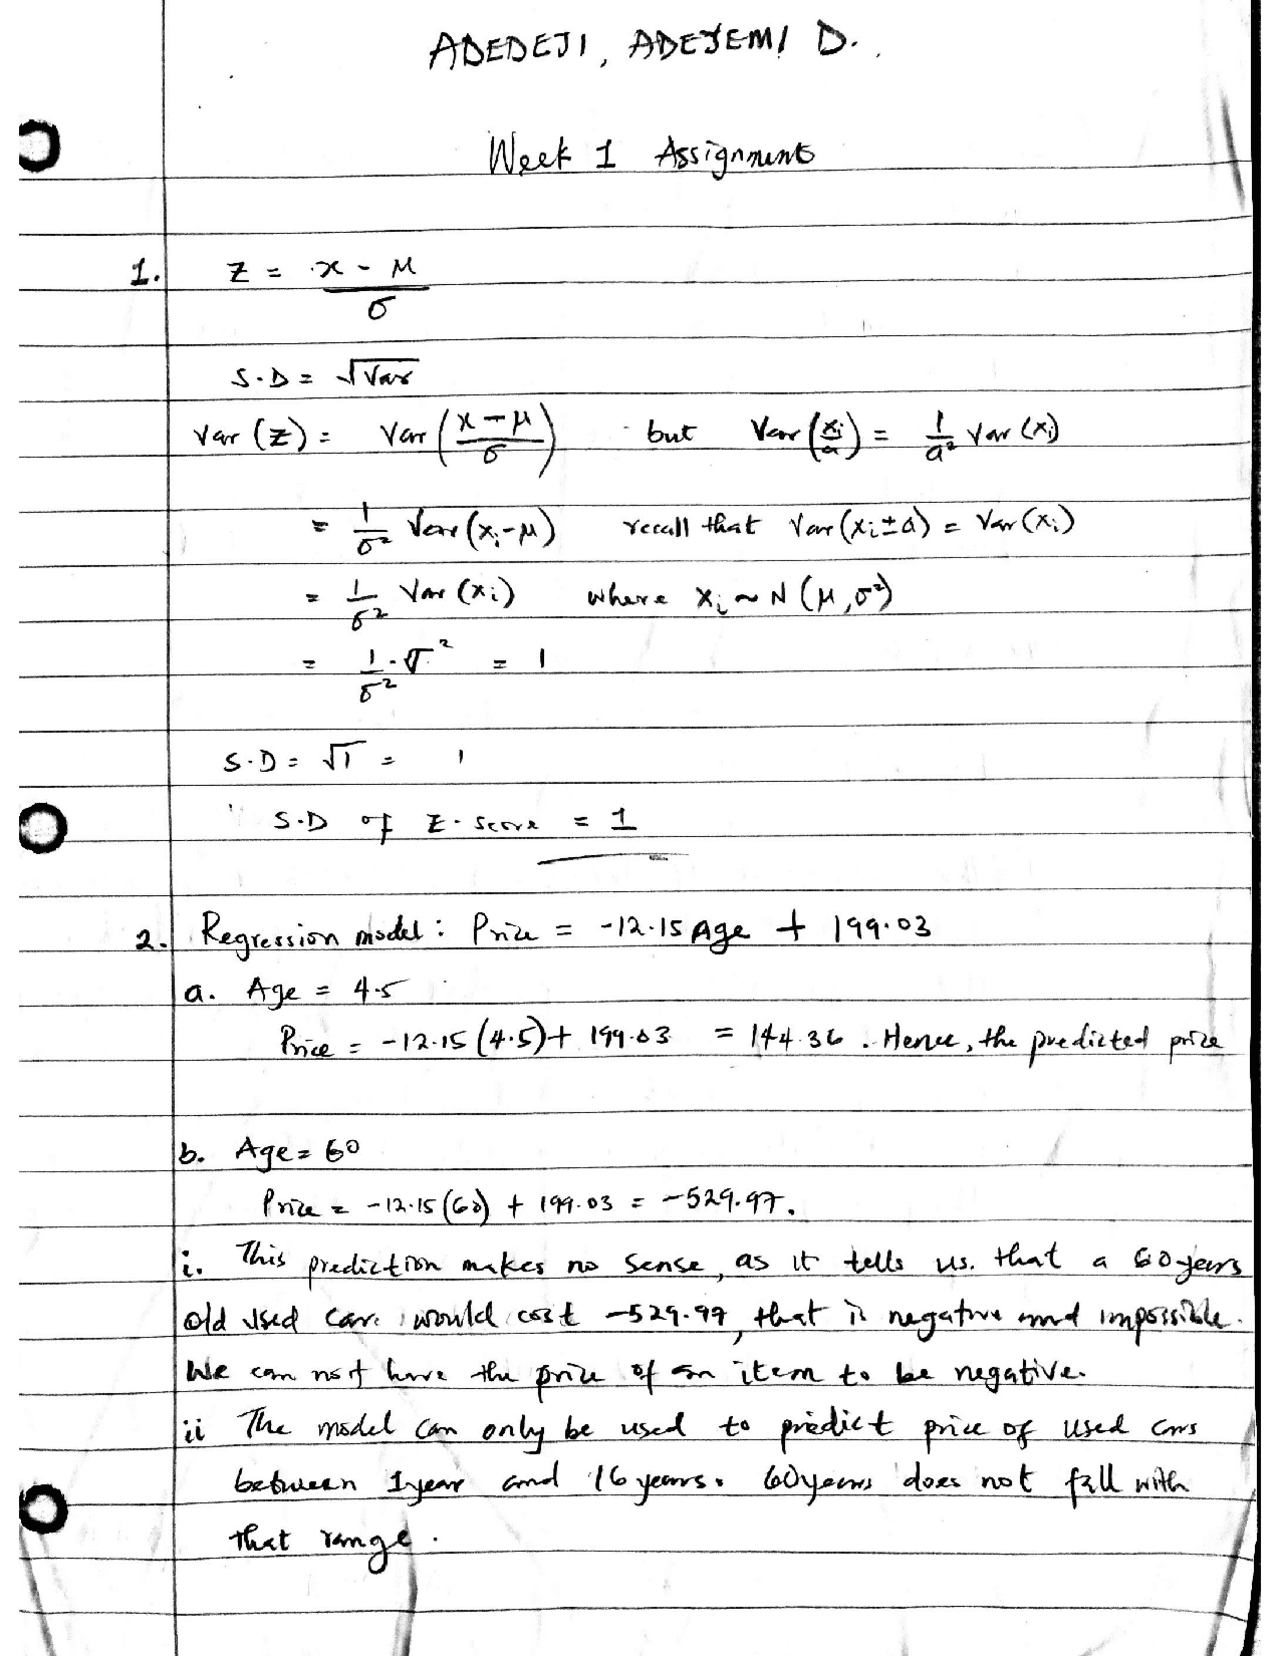 ADEDEJI, ADEYEMI D.
Week 1 Assignment
1. Z = x - μ
σ
S.D = √Var
Var (Z) = Var (x - μ / σ) but Var (xi / a) = 1/a² Var (xi)
= 1/σ² Var (xi - μ) recall that Var (xi ± a) = Var (xi)
= 1/σ² Var (xi) where xi ~ N (μ, σ²)
= 1/σ² · σ² = 1
S.D = √1 = 1
S.D of Z-score = 1
2. Regression model: Price = -12.15 Age + 199.03
a. Age = 4.5
Price = -12.15 (4.5) + 199.03 = 144.36. Hence, the predicted price
b. Age = 60
Price = -12.15 (60) + 199.03 = -529.97.
i. This prediction makes no sense, as it tells us. that a 60 years
old used car would cost -529.97, that is negative and impossible.
We can not have the price of an item to be negative.
ii The model can only be used to predict price of used cars
between 1 year and 16 years. 60 years does not fall with
that range.